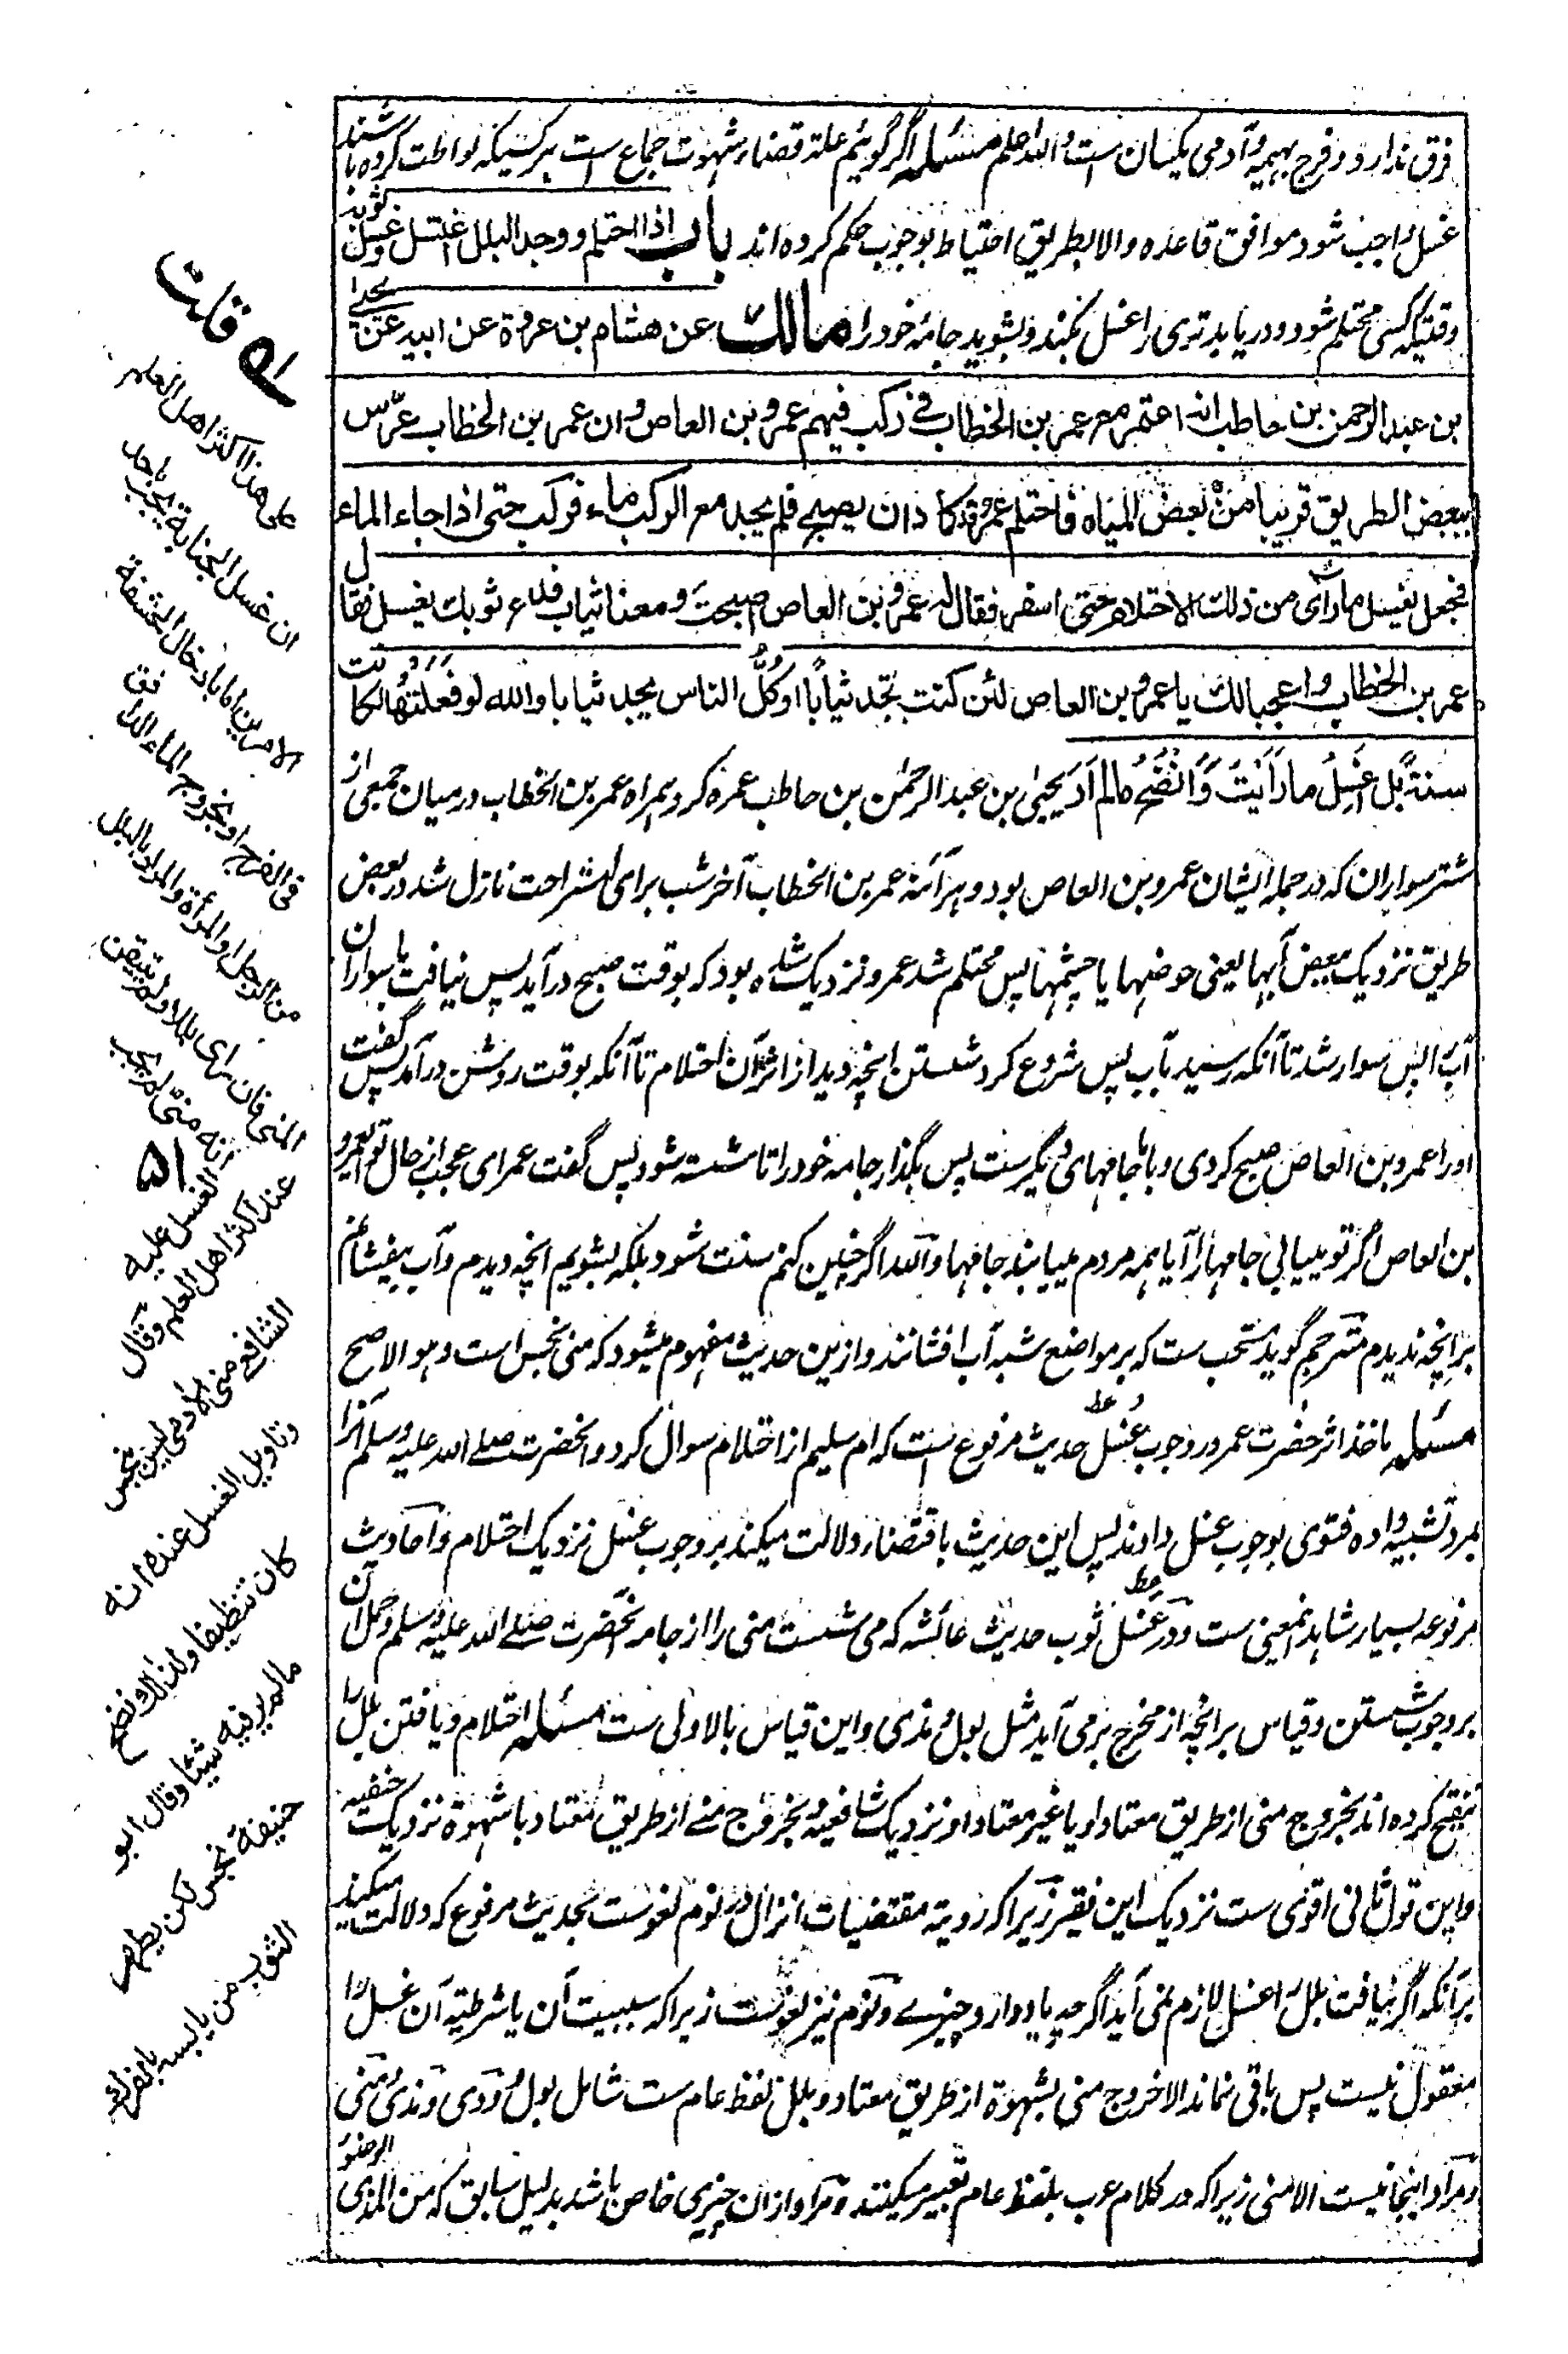 فرق ندارد و فرج بهیمه و آدمی یکسان است والله اعلم مسئله اگر گوئیم علة قضاء شهوت جماع است بر کسیکه لواطت کرده باشند
غسل واجب شود موافق قاعده والا بطریق احتیاط بوجوب حکم کرده اند باب اذا احتلم ووجد البلل اغتسل وغسل ثوبه
وقتیکه کسی محتلم شود و دریابد تری را غسل بکند و بشوید جامهٔ خود را مالک عن هشام بن عروة عن ابيه عن يحيى
بن عبد الرحمن بن حاطب انه اعتمر مع عمر بن الخطاب في ركب فيهم عمرو بن العاص وان عمر بن الخطاب عرّس
ببعض الطريق قريبا من بعض المياه فاحتلم عمر وقد كاد ان يصبح فلم يجد مع الركب ماء فركب حتى اذا جاء الماء
فجعل يغسل ما رآى من ذلك الاحتلام حتى اسفر فقال له عمرو بن العاص اصبحت ومعنا ثياب فدع ثوبك يغسل فقال
عمر بن الخطاب واعجبا لك يا عمرو بن العاص لئن كنت تجد ثيابًا اوكلُّ الناس يجد ثيابا والله لو فعلتها لكانت
سنة بل اغسلُ ما رأيتُ وانضحُ ما لم ار یحیی بن عبد الرحمٰن بن حاطب عمره کرد همراه عمر بن الخطاب درمیان جمعی از
شتر سواران که در جمله ایشان عمرو بن العاص بود و هر آئنه عمر بن الخطاب آخر شب برای استراحت نازل شد در بعض
طریق نزدیک بعض آبها یعنی حوضها یا چشمها پس محتلم شد عمر و نزدیک شده بود که بوقت صبح درآید پس نیافت با سواران
آب را پس سوار شد تا آنکه رسید بآب پس شروع کرد شستن انچه دید از اثر آن احتلام تا آنکه بوقت روشن درآمد پس گفت
او را عمرو بن العاص صبح کردی و با ما جامهای دیگرست پس بگذار جامه خود را تا شسته شود پس گفت عمر ای عجب از حال تو ای عمرو
بن العاص اگر تو مییابی جامها را آیا همه مردم مییابند جامها والله اگر چنین کنم سنت شود بلکه بشویم انچه دیدم و آب بیفشانم
بر انچه ندیدم مترجم گوید مستحب ست که بر مواضع شبه آب افشانند و ازین حدیث مفهوم میشود که منی نجس است و هو الاصح
مسئله ماخذ اثر حضرت عمر در وجوب غسل حدیث مرفوع است که ام سلیم از احتلام سوال کرد و آنحضرت صلے الله علیه وسلم آنرا
بمرد تشبیه داده فتوی بوجوب غسل دادند پس این حدیث باقتضاء دلالت میکند بر وجوب غسل نزدیک احتلام و احادیث
مرفوعه بسیار شاهد انمعنی ست و در غسل ثوب حدیث عائشه که می شست منی را از جامه آنحضرت صلے الله علیه وسلم و حمل آن
بر وجوب شستن و قیاس بر انچه از مخرج برمی آید مثل بول و مذی و این قیاس بالاولی ست مسئله احتلام و یافتن بلل را
تنقیح کرده اند بخروج منی از طریق معتاد او یا غیر معتاد او نزدیک شافعیه و بخروج منی از طریق معتاد با شهوة نزدیک حنفیه
و این قول ثانی اقوی ست نزدیک این فقیر زیرا که رویة مقتضیات انزال در نوم لغوست بحدیث مرفوع که دلالت میکند
بر آنکه اگر نیافت بلل را غسل لازم نمی آید اگرچه یاد دارد چیزے و نوم نیز لغوست زیرا که سببیت آن یا شرطیة آن غسل را
معقول نیست پس باقی نماند الا خروج منی بشهوة از طریق معتاد و بلل لفظ عام ست شامل بول و ودی و مذی و منی
و مراد اینجا نیست الا منی زیرا که در کلام عرب بلفظ عام تعبیر میکنند و مراد از ان چیزی خاص باشد بدلیل سابق که من المذی الوضوء
ـه قلت
على هذا اكثر اهل العلم
ان غسل الجنابة يجب باحد
الامرين اما بادخال الحشفة
فى الفرج او بخروج الماء الدافق
من الرجل او المرأة والمراد بالبلل
المنى فان رأى بللا ولم يتيقن
انه منى لم يجب
الغسل عليه
عند اكثر اهل العلم وقال
الشافعى منى الآدمى ليس بنجس
وتاويل الغسل عنده انه
كان تنظيفا ولذلك نضح
ما لم ير فيه شيئا وقال ابو
حنيفة نجس لكن يطهر
الثوب من يابسه بالفرك